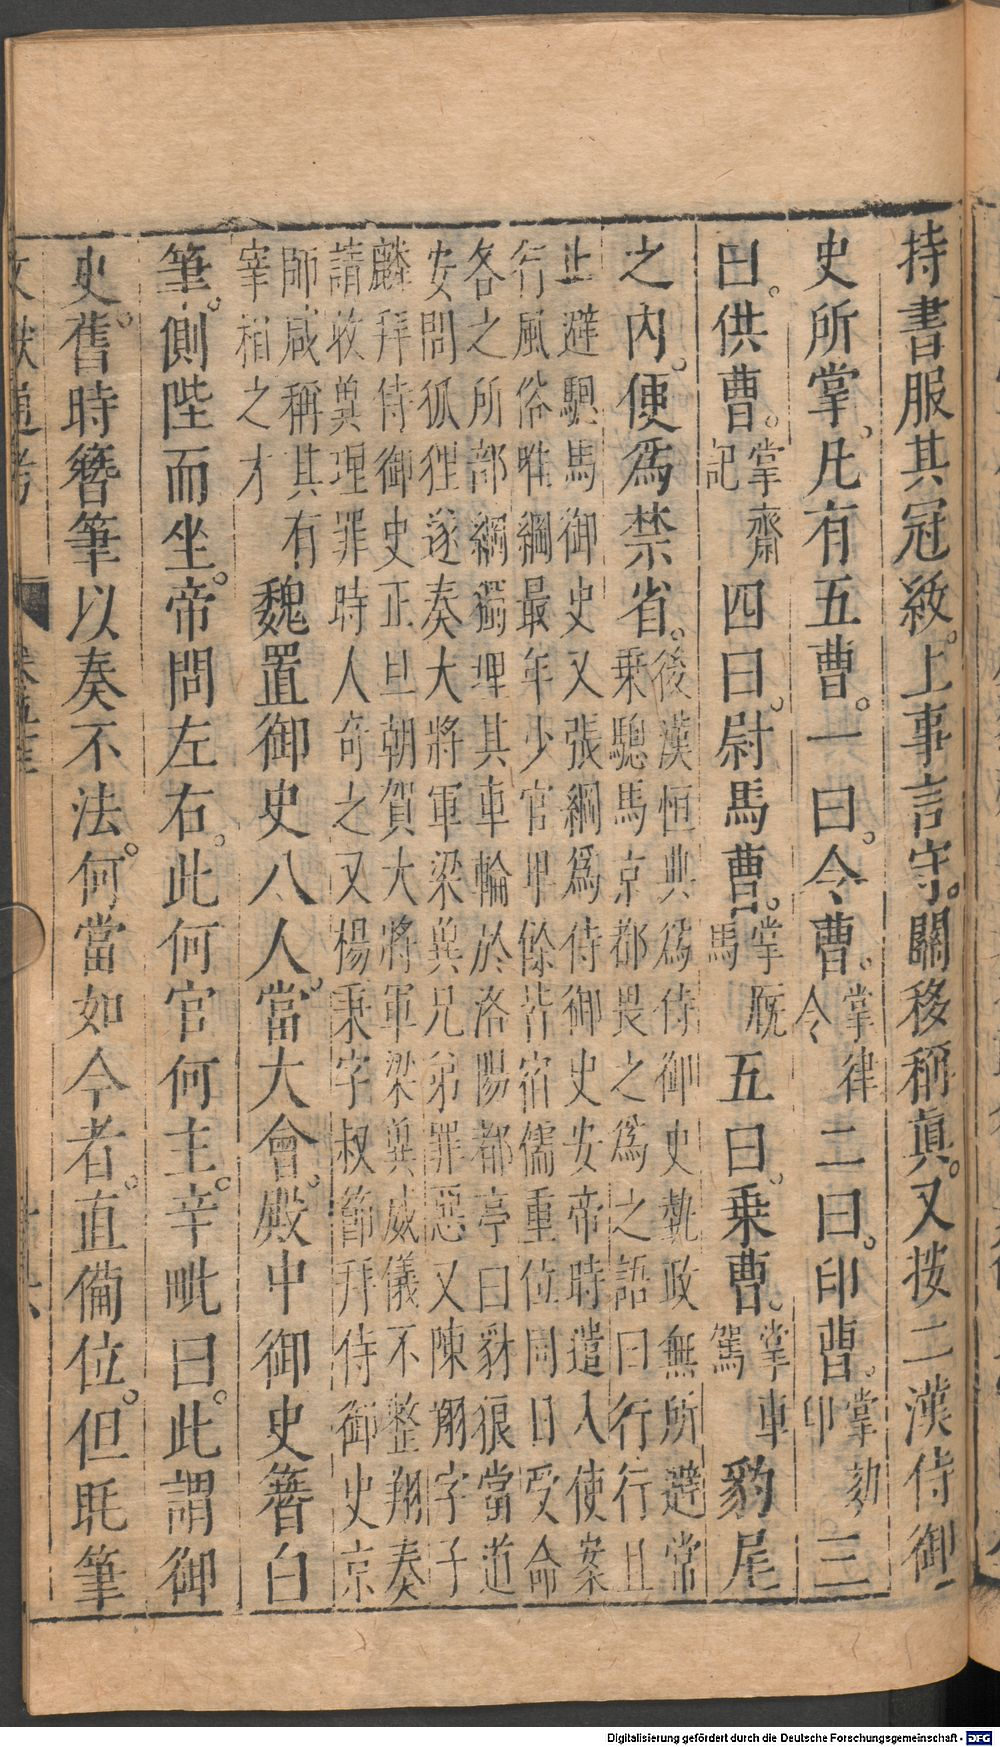 持書服其冠紱。上事言守。關移稱真。又按二漢侍御
史所掌。凡有五曹。一曰。令曹。掌律令二曰。印曹。掌刻印三
曰。供曹。掌齋記四曰。尉馬曹。掌厩馬五曰。乗曹。掌車篤豹尾
之内。便爲禁省。後漢恒典爲侍御史執政無所避常
乗驄馬京都畏之爲之語曰行行且
止避驄馬御史又張綱爲侍御史安帝時遣八使案
行風俗唯綱最年少官卑餘皆宿儒重位同日受命
各之所部綱獨埋其車輪於洛陽都亭曰豺狼當道
安問狐狸遂奏大將軍梁冀兄弟罪惡又陳翔字子
麟拜侍御史正旦朝賀大將軍梁冀威儀不整翔奏
請收冀理罪時人奇之又楊秉字叔節拜侍御史京
師咸稱其有
宰相之才魏置御史八人。當大會。殿中御史簪白
筆。側陛而坐。帝問左右。此何官何主。辛毗曰。此謂御
史。舊時簪筆以奏不法。何當如今者。直備位。但眊筆
文獻通考
Digitalisierung gefördert durch die Deutsche Forschungsgemeinschaft - DFG